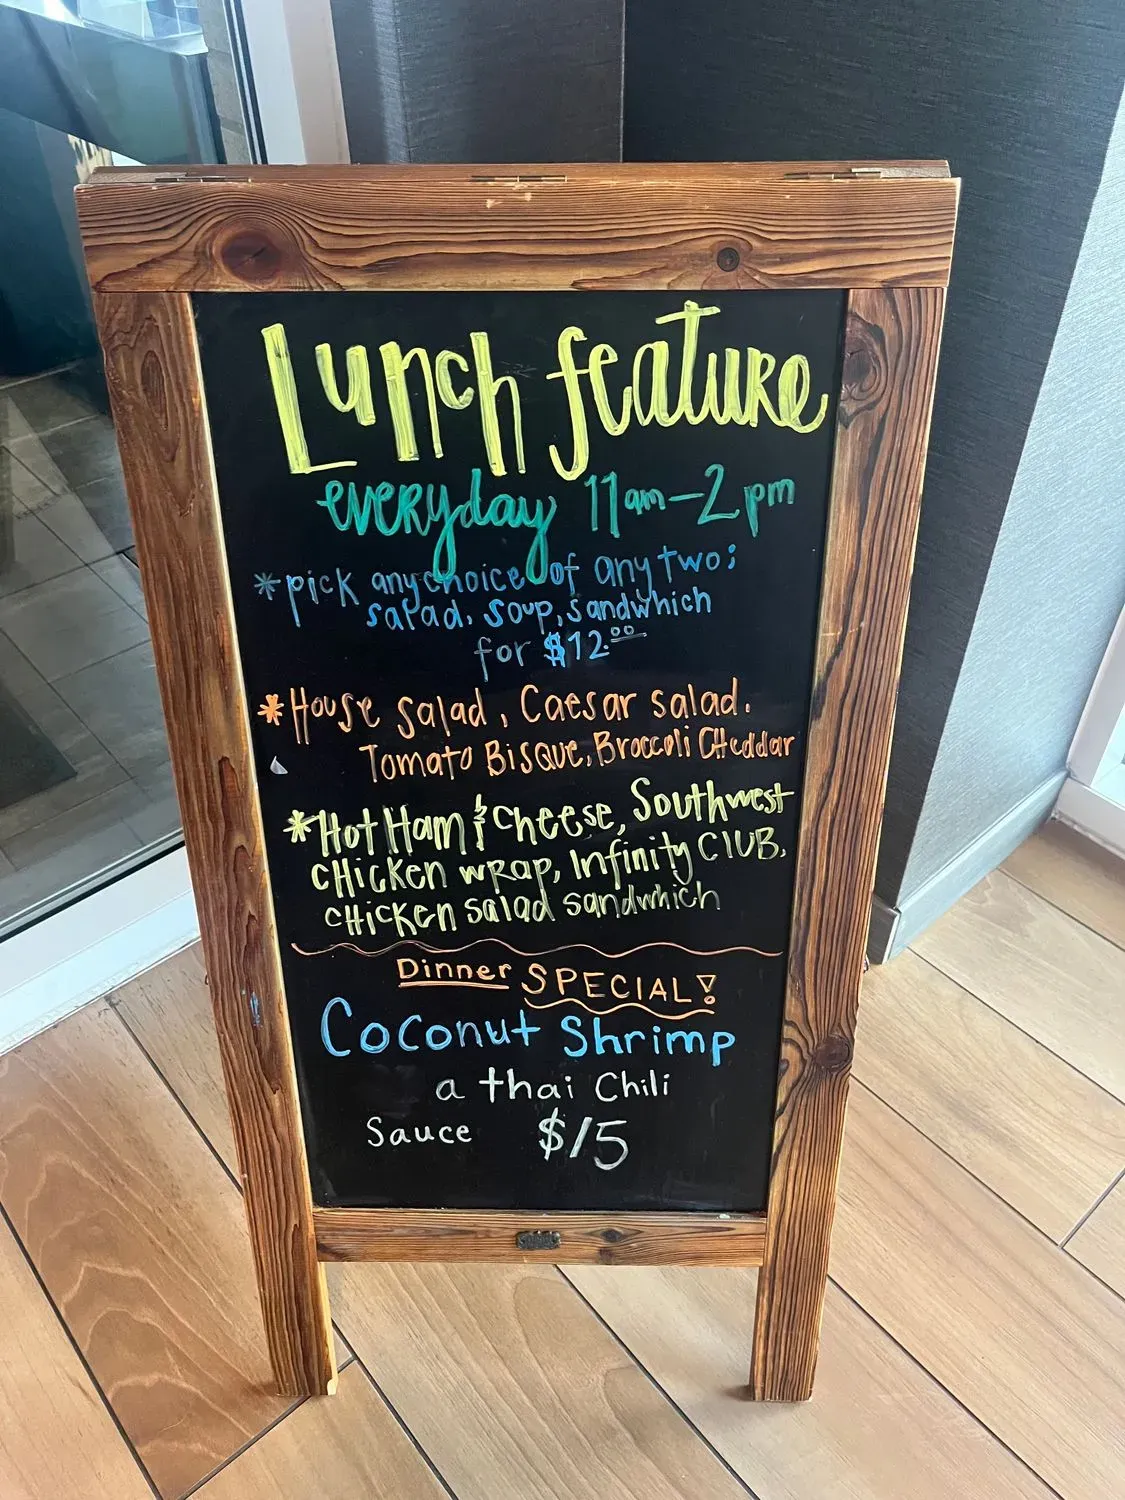 Lunch feature
everyday 11am-2pm
*pick any choice of any two;
salad, soup, sandwhich
for $12.00
*House salad, Caesar salad.
Tomato Bisque, Broccoli Cheddar
*Hot Ham & cheese, Southwest
chicken wrap, Infinity CLUB,
chicken salad sandwhich
Dinner SPECIAL!
Coconut Shrimp
a thai Chili
Sauce $15